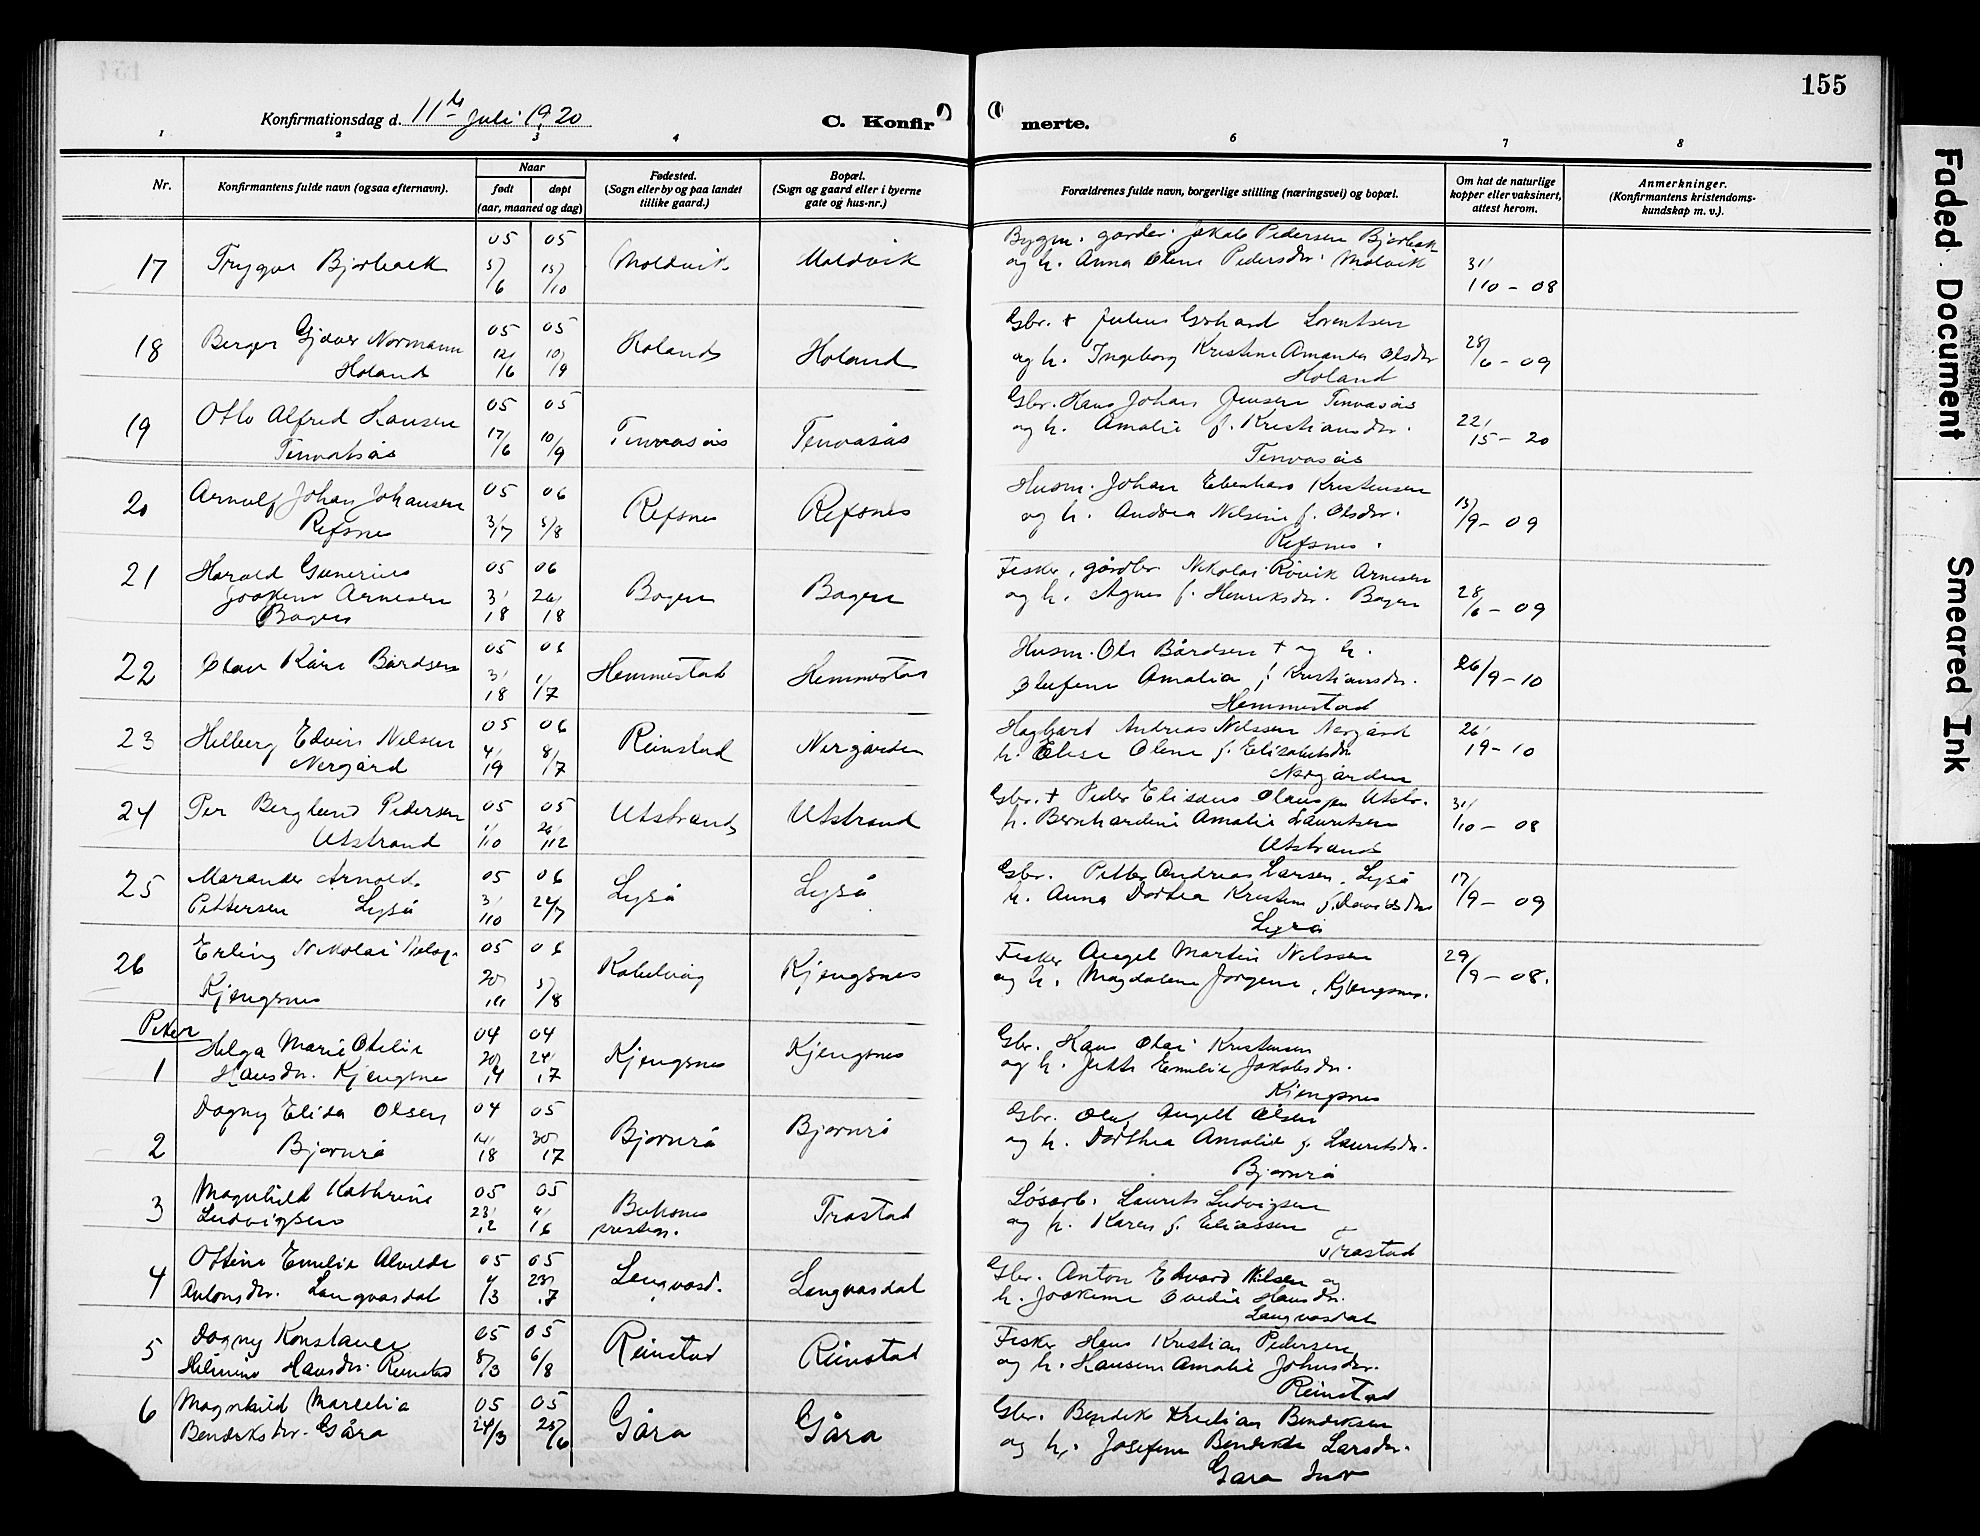 155
Konfirmationsdag d. 11te Juli 1920
C. Konfir
merte.
1 2 3 4 6 7 8
Nr.
Konfirmantens fulde navn (ogsaa efternavn).
Naar
født
døpt
(aar, maaned og dag)
Fødested.
(Sogn eller by og paa landet
tillike gaard.)
Bopæl.
(Sogn og gaard eller i byerne
gate og hus-nr.)
Forældrenes fulde navn, borgerlige stilling (næringsvei) og bopæl.
Om hat de naturlige
kopper eller vaksinert,
attest herom.
Anmerkninger.
(Konfirmantens kristendoms-
kundskap m. v.).
17 Trygve Bjørbæk 05 5/6 05 15/10 Moldvik Moldvik
Bygm. gårdbr. Jakob Pedersen Bjørbæk
og h. Anna Oline Pedersdr. Molvik
31/10 - 08
18 Berger Gjæver Normann
Holand
05 12/6 05 10/9 Holand Holand
Gbr. + Julius Gerhard Lorentsen
og h. Ingeborg Kristine Amanda Olsdr
Holand
28/6 - 09
19 Otto Alfred Hansen
Tenvatsås
05 17/6 05 10/9 Tennvasås Tenvasås
Gbr. Hans Johan Jensen Tenvasås
og h. Amalie f. Kristiansdr.
Tenvasås
22/5 - 20
20 Arnulf Johan Johansen
Refsnes
05 3/7 06 5/8 Refsnes Refsnes
Husm. Johan Eberhard Kristensen
og h. Andrea Nelsine f. Olsdr.
Refsnes.
15/9 - 09
21 Harald Gunerius
Joakim Arnesen
Bogen
05 3/8 06 26/8 Bogen Bogen
Fisker, gårdbr. Nikolai Røvik Arnesen
og h. Agnes f. Henriksdr. Bogen
28/6 - 09
22 Olav Kåre Bårdsen 05 3/8 06 1/7 Hemmestad Hemmestad
Husm. Ole Bårdsen + og h.
Olufine Amalia f. Kristiansdr.
Hemmestad
26/9 - 10
23 Hilberg Edvin Nilsen
Nergård
05 4/9 06 8/7 Reinstad Nergården
Hagbart Andreas Nilssen Nergård
h. Elise Oline f. Elisabetsdr
Nergården
26/9 - 10
24 Per Berglund Pedersen
Utstrand
05 1/10 05 26/12 Utstrand Utstrand
Gbr. + Peder Elisæus Utstr.
h. Bernhardine Amalie Lauritsen
Utstrand
31/10 - 08
25 Marander Arnold
Pettersen Lyså
05 3/10 06 22/7 Lyså Lyså
Gbr. Petter Andreas Larsen, Lyså
h. Anna Dorthea Kristine f. Davidsdr
Lyså
17/9 - 09
26 Erling Nikolai
Kjengsnes
05 06 5/8 Kabelvåg Kjengsnes
Fisker Angel Martin Nilssen
og h. Magdalene Jørgine, Kjengsnes.
29/9 - 08.
Piker
1 Helga Marie Otelie
Hansdr. Kjengsnes
04 20/4 04 24/7 Kjengsnes Kjengsnes
Gbr. Hans Olai Kristensen
og h. Jutte Emelie Jakobsdr.
Kjengsnes
2 Dagny Elida Olsen
Bjørnrå
04 14/8 05 30/7 Bjørnrå Bjørnrå
Gbr. Oluf Angell Olsen
og h. Dorthea Amalie f. Lauritsdr.
Bjørnrå
3 Magnhild Kathrine
Ludvigsen
05 23/2 05 4/6 Buksnes
prestegj. Trastad
Løsarb. Laurits Ludvigsen
og h. Karen f. Eliassen
Trastad
4 Ottine Emelie Alvilde
Antonsdr. Langvasdal
05 4/3 05 23/7 Langvasd. Langvasdal
Gbr. Anton Edvard Nilsen og
h. Joakime Ovedie Hansdr.
Langvasdal
5 Dagny Konstance
Helmine Hansdr. Reinstad
05 8/3 05 6/8 Reinstad Reinstad
Fisker Hans Kristian Pedersen
og h. Hansine Amalie Johnsdr.
Reinstad
6 Magnhild Marselie
Bendiksdr. Gåra
05 24/3 05 25/6 Gåra Gåra
Gbr. Bendik Kristian Bendiksen
og h. Josefine Bendikte Larsdr.
Gåra
Faded Document
Smeared Ink